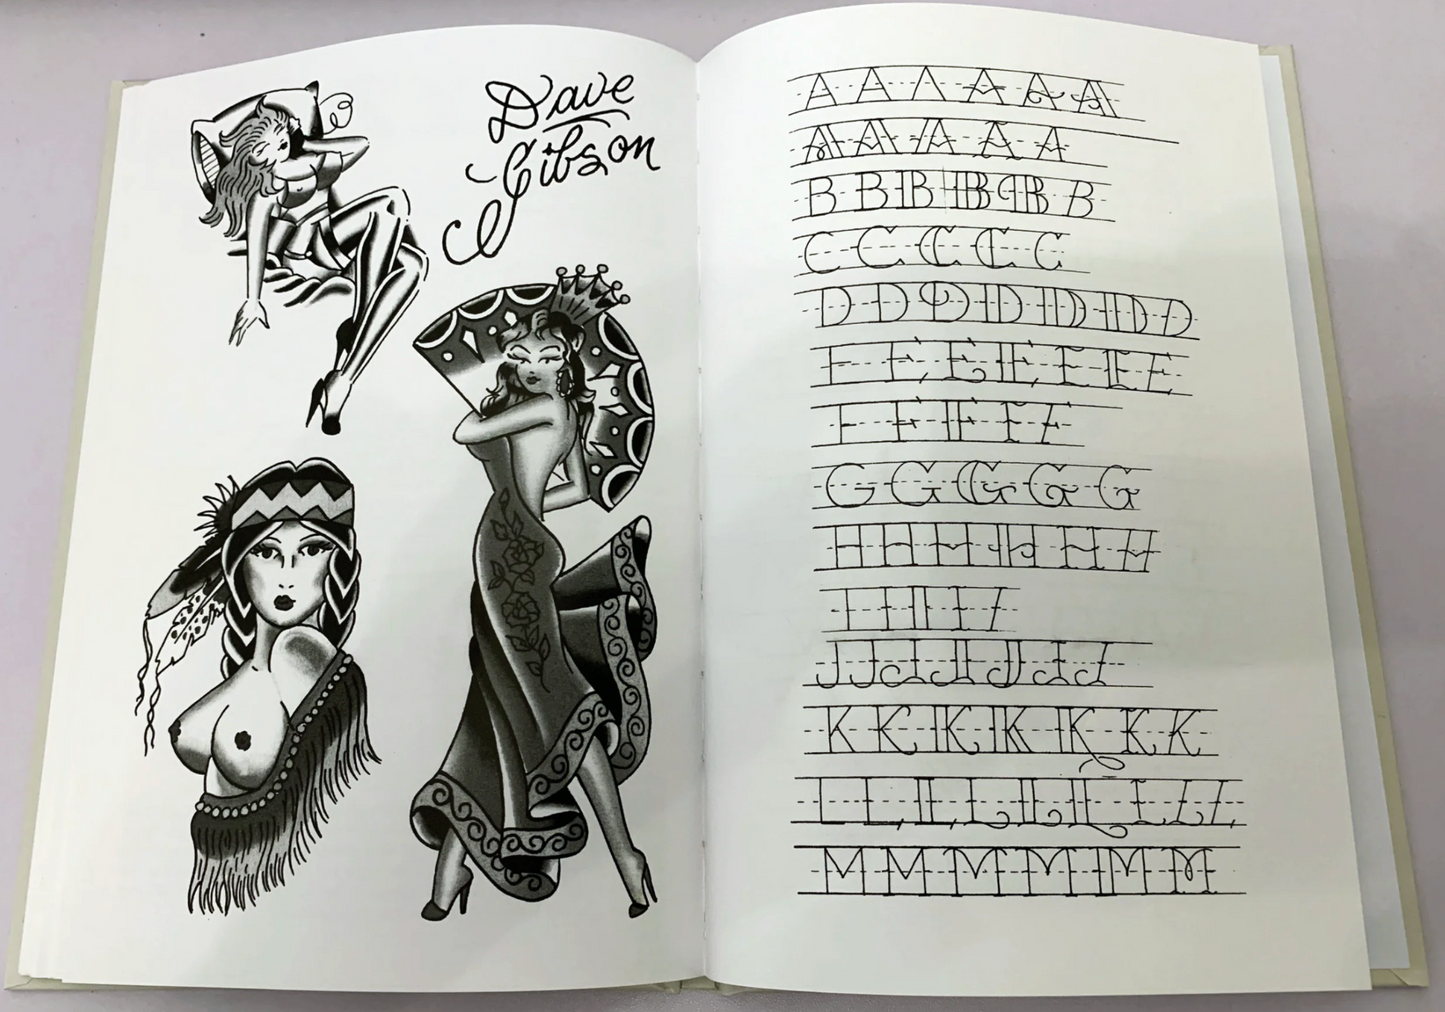 Dave
Gibson
A A A A A A
A A A A A
B B B B B B
C C C C C
D D D D D D D
E E E E E E E
F F F F F
G G G G G
H H H H H H
I I I I I
J J J J J J J
K K K K K K K
L L L L L L L L L
M M M M M M